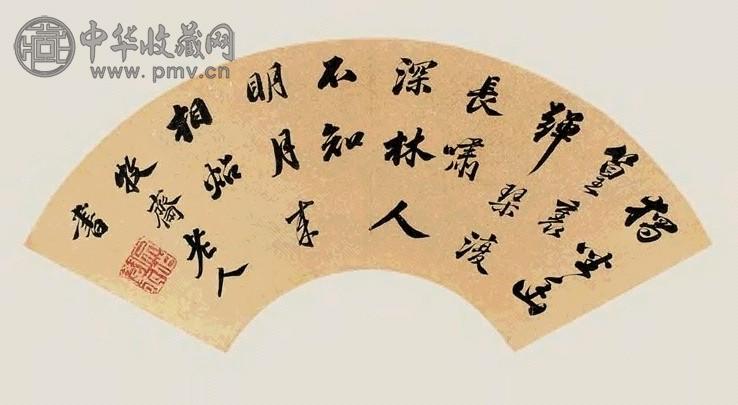 中华收藏网
www.pmv.cn
獨坐幽
篁裏
彈琴復
長嘯
深林人
不知
明月来
相炤
牧齋老人
書